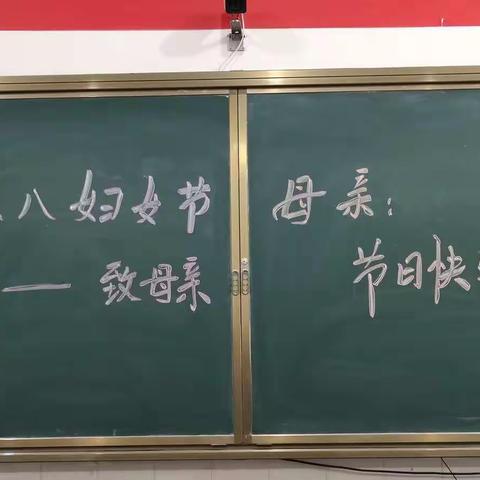 八妇女节
——致母亲
母亲：
节日快